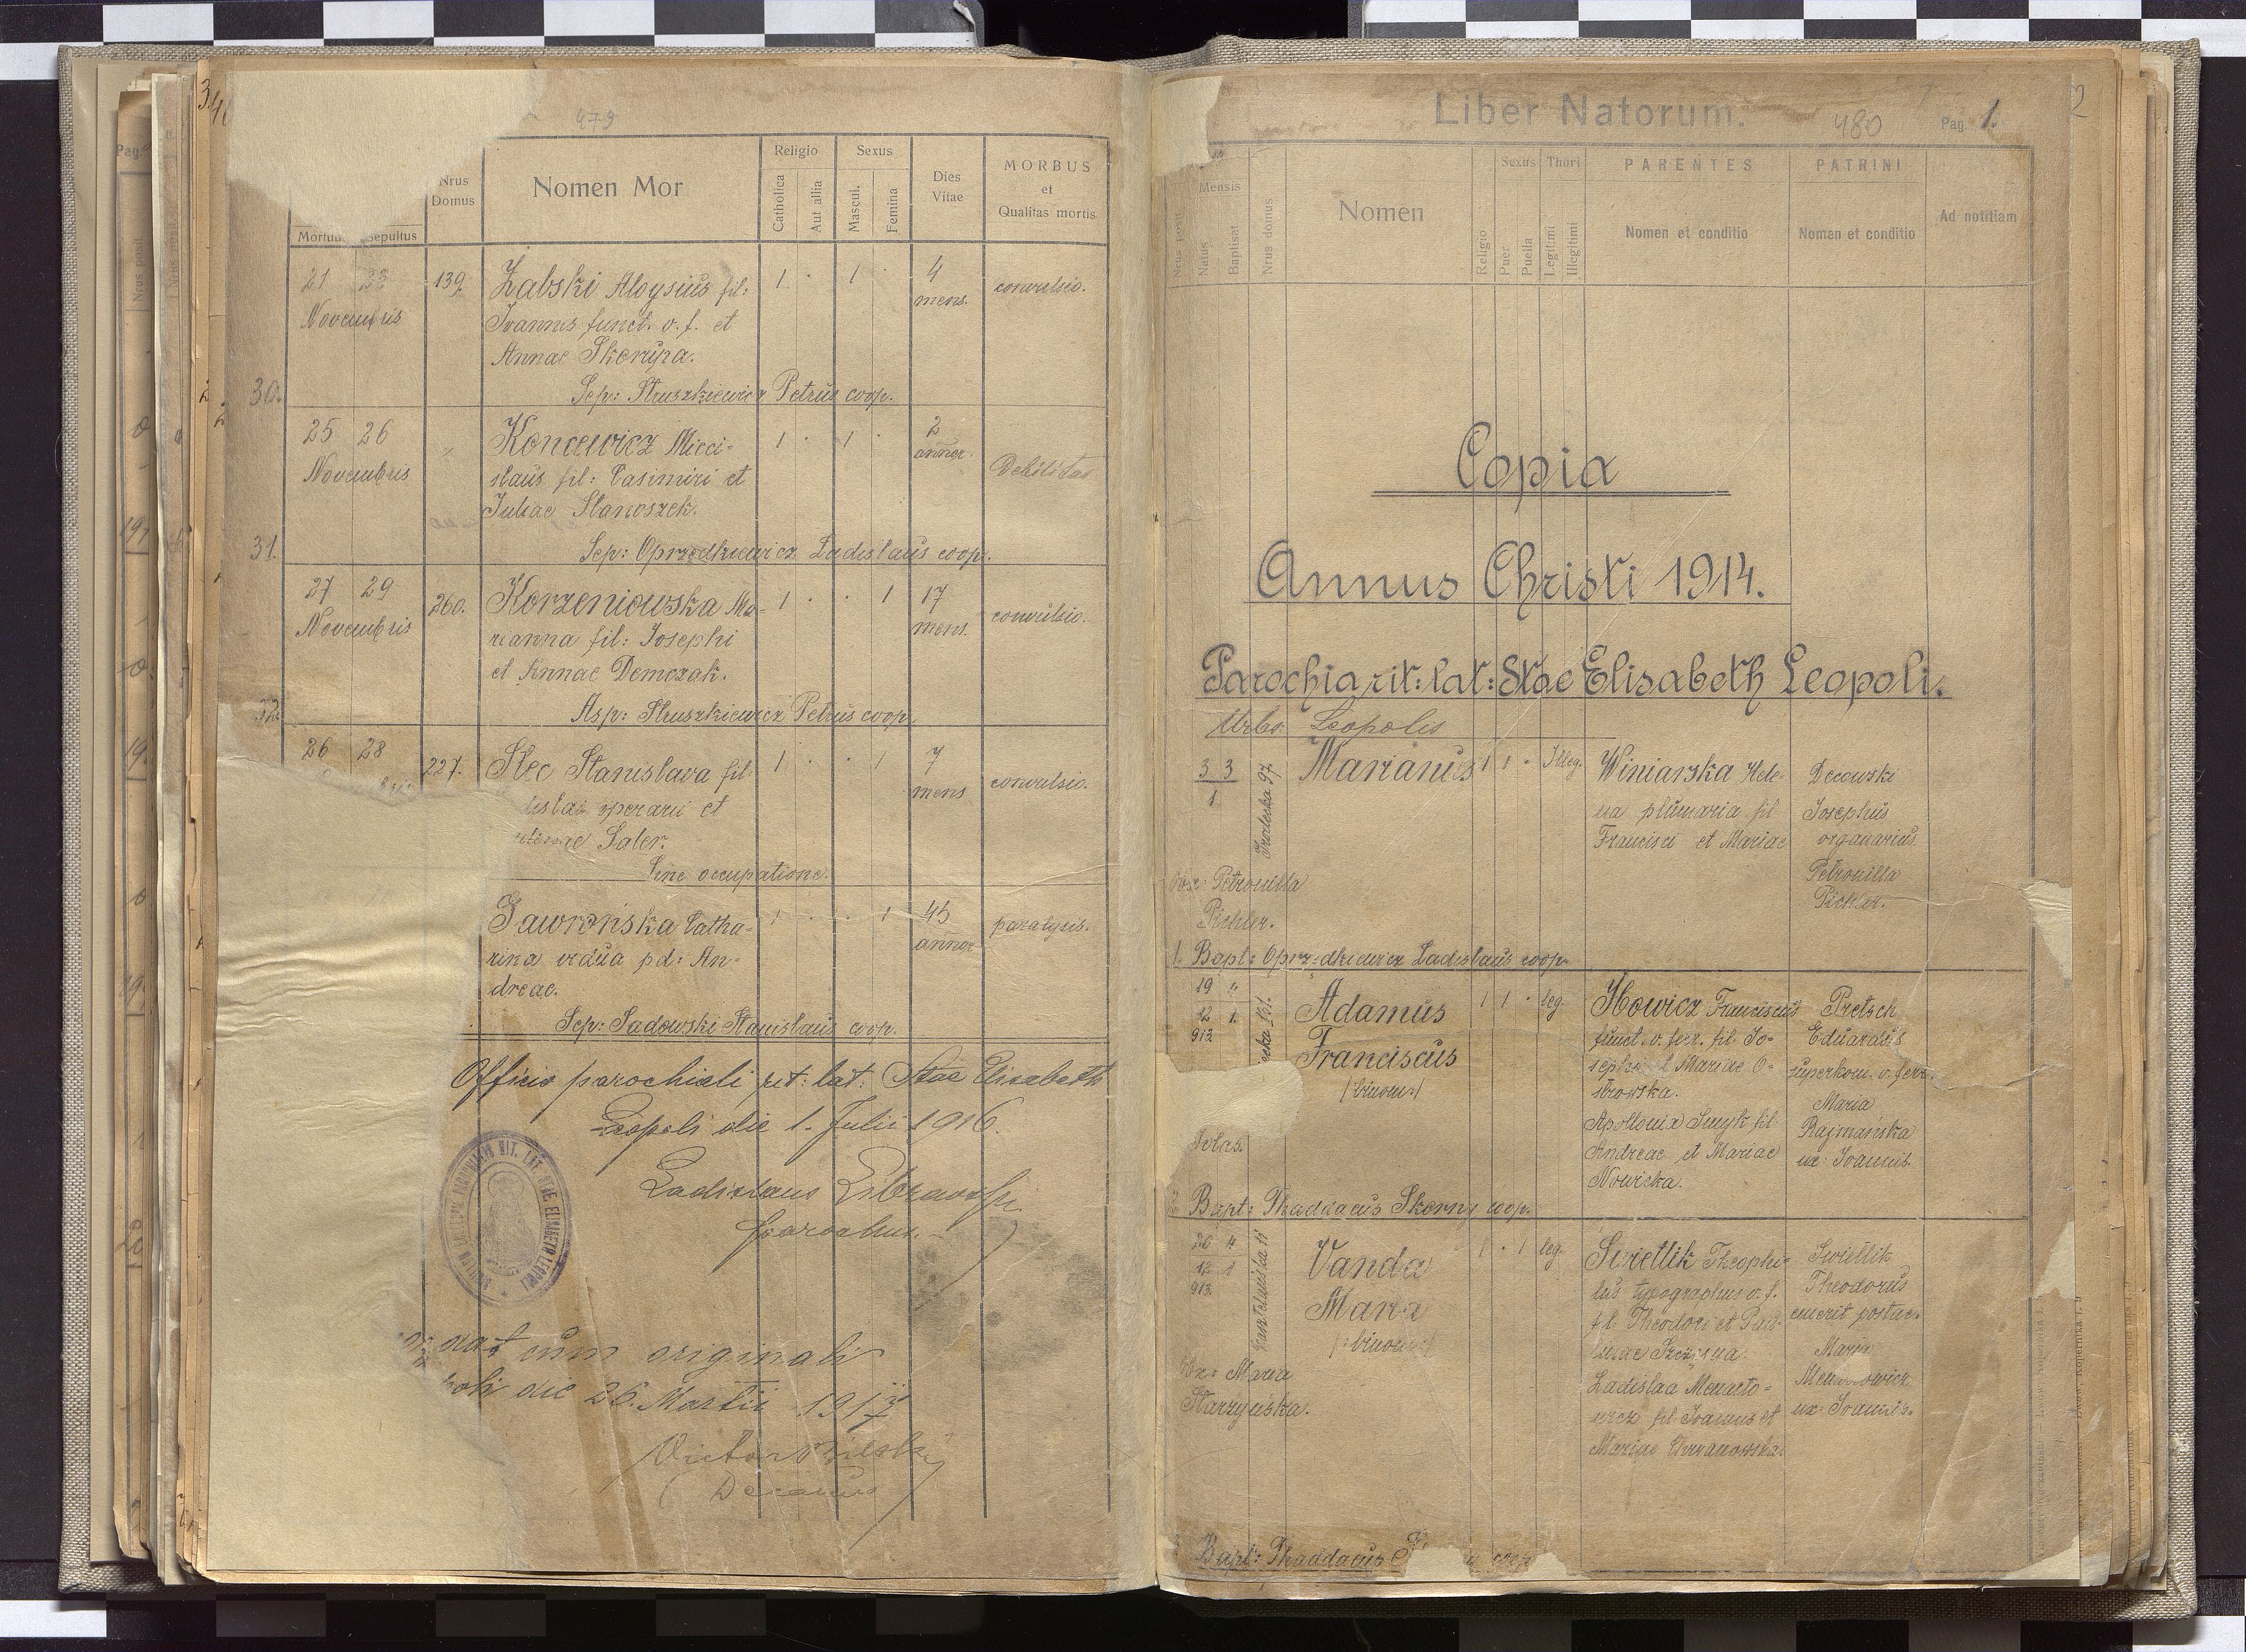 479
Nrus
Domus
Nomen Mor
Religio
Catholica
Aut allia
Sexus
Mascul.
Femina
Dies
Vitae
MORBUS
et
Qualitas mortis
Sepultus
21 23
Novembris
139.
Żabski Aloysius fil:
Joannis funct. v. f. et
Annae Skorupa.
1 · 1 ·
4
mens.
convulsio.
30.
Sep: Struszkiewicz Petrus coop.
25 26
Novembris
Koncewicz Mieci-
slaus fil: Casimiri et
Juliae Stanoszek.
1 · 1 ·
2
annor.
Debilitas
31.
Sep: Oprzędkiewicz Ladislaus coop.
27 29
Novembris
260.
Korzeniowska Ma-
rianna fil: Josephi
et Annae Demczak.
1 · · 1
17
mens.
convulsio.
32.
Asp: Struszkiewicz Petrus coop.
26 28
227.
Stec Stanislava fil
operarii et
Saler.
1 · · 1
7
mens
convulsio.
Sine occupatione.
Jaworska Catha-
rina vidua pd: An-
dreae.
1 · · 1
45
annor
paralysis.
Sep: Sadowski Stanislaus coop.
Officio parochiali rit: lat: Stae Elisabeth
Leopoli die 1. Julii 1916.
Ladislaus
parochus.
RIT. LAT. STAE ELISABETH LEOPOLI
cum originali
die 26. Martii 1917
Victor
Decanus
Liber Natorum.
480
Pag. 1.
Nrus posit.
Mensis
Natus
Baptisat
Nrus domus
Nomen
Religio
Sexus
Puer
Puella
Thori
Legitimi
Illegitimi
PARENTES
Nomen et conditio
PATRINI
Nomen et conditio
Ad notitiam
Copia
Annus Christi 1914.
Parochia rit: lat: Stae Elisabeth Leopoli.
Urbs: Leopolis
3 3
1
97.
Marianus
1 1 · Illeg.
Winiarska Hele-
na plumaria fil
Francisci et Mariae
Decowski
Josephus
organarius.
Petronilla
Pichler.
Obs: Petronilla
Pichler.
1. Bapt: Oprzędkiewicz Ladislaus coop.
19 "
12 1.
913
Adamus
Franciscus
/binom:/
1 1 · leg.
Howicz Franciscus
funct. v. ferr. fil. Jo-
sephi et Mariae O-
strowska.
Apollonia Smyk fil
Andreae et Mariae
Nowicka.
Pretsch
Eduardus
superkom. v. ferr.
Maria
Rajmańska
ux: Joannis.
2 Bapt: Thaddaeus Skorny coop.
20 4
12 1
913
Vanda
Maria
/:binom:/
1 · 1 leg.
Swietlik Theophi-
lus typographus v. f.
fil. Theodori et Pau-
linae
Ladislaa Menarto-
wicz fil Joannis et
Mariae
Swietlik
Theodorus
emerit postae.
Maria
ux: Joannis.
Obs: Maria
Starzyńska.
Bapt: Thaddaeus